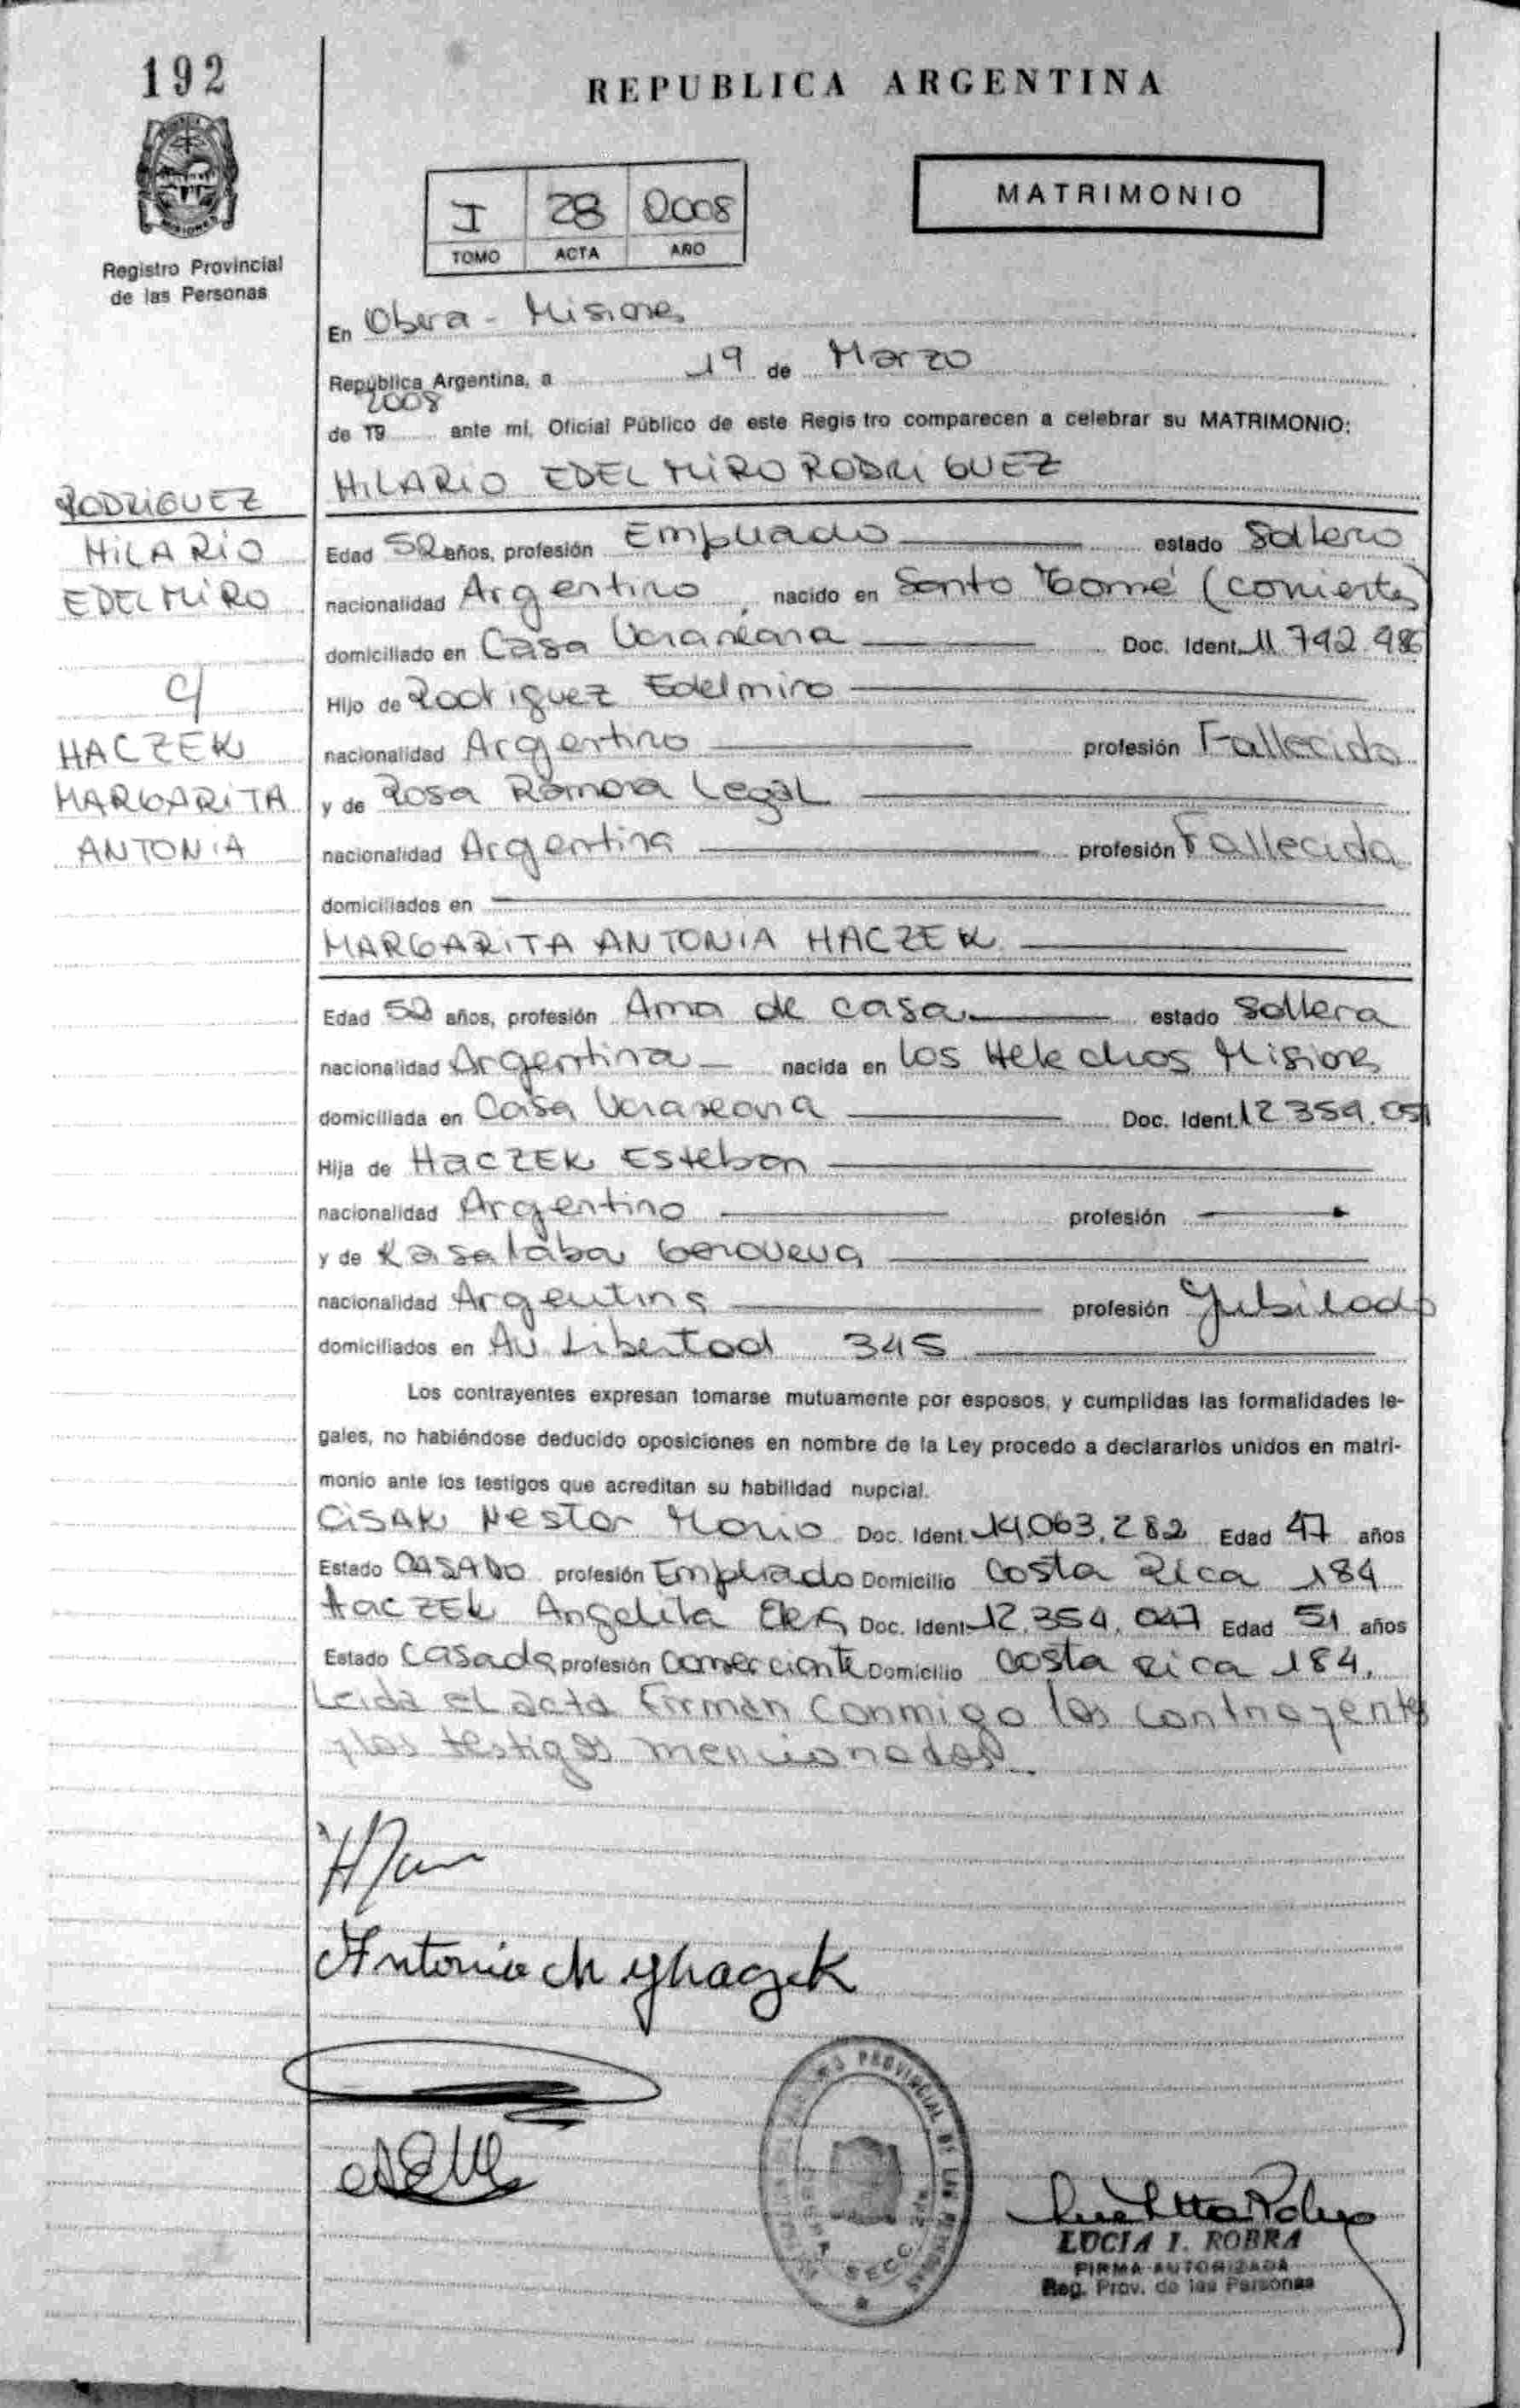 192
REPUBLICA ARGENTINA
MATRIMONIO
I 28 2008
TOMO ACTA AÑO
MISIONES
Registro Provincial
de las Personas
En Obera - Misiones
República Argentina, a 19 de Marzo
2008
de 19 ante mí, Oficial Público de este Registro comparecen a celebrar su MATRIMONIO:
HILARIO EDELMIRO RODRIGUEZ
RODRIGUEZ
HILARIO
EDELMIRO
C/
HACZEK
MARGARITA
ANTONIA
Edad 52 años, profesión Empleado estado Soltero
nacionalidad Argentino, nacido en Santo Tomé (Corrientes)
domiciliado en Casa Doc. Ident. 11.742.986
Hijo de Rodriguez Edelmiro
nacionalidad Argentino profesión Fallecido
y de Rosa Ramona Legal
nacionalidad Argentina profesión Fallecida
domiciliados en
MARGARITA ANTONIA HACZEK
Edad 52 años, profesión Ama de casa estado Soltera
nacionalidad Argentina nacida en Los Helechos Misiones
domiciliada en Casa Doc. Ident. 12.359.051
Hija de HACZEK Esteban
nacionalidad Argentino profesión
y de Kasalaba Genoveva
nacionalidad Argentina profesión Jubilado
domiciliados en Av Libertad 345
Los contrayentes expresan tomarse mutuamente por esposos, y cumplidas las formalidades le-
gales, no habiéndose deducido oposiciones en nombre de la Ley procedo a declararlos unidos en matri-
monio ante los testigos que acreditan su habilidad nupcial.
CISAK Nestor Mario Doc. Ident. 14.063.282 Edad 47 años
Estado CASADO profesión Empleado Domicilio Costa Rica 184
HACZEK Angelita Doc. Ident. 12.354.047 Edad 51 años
Estado Casada profesión Comerciante Domicilio Costa Rica 184.
Leida el acta firman conmigo los contrayentes
y los testigos mencionados.
Antonia M
PROVINCIAL DE LAS PERSONAS
SECC
LUCIA I. ROBRA
FIRMA AUTORIZADA
Reg. Prov. de las Personas